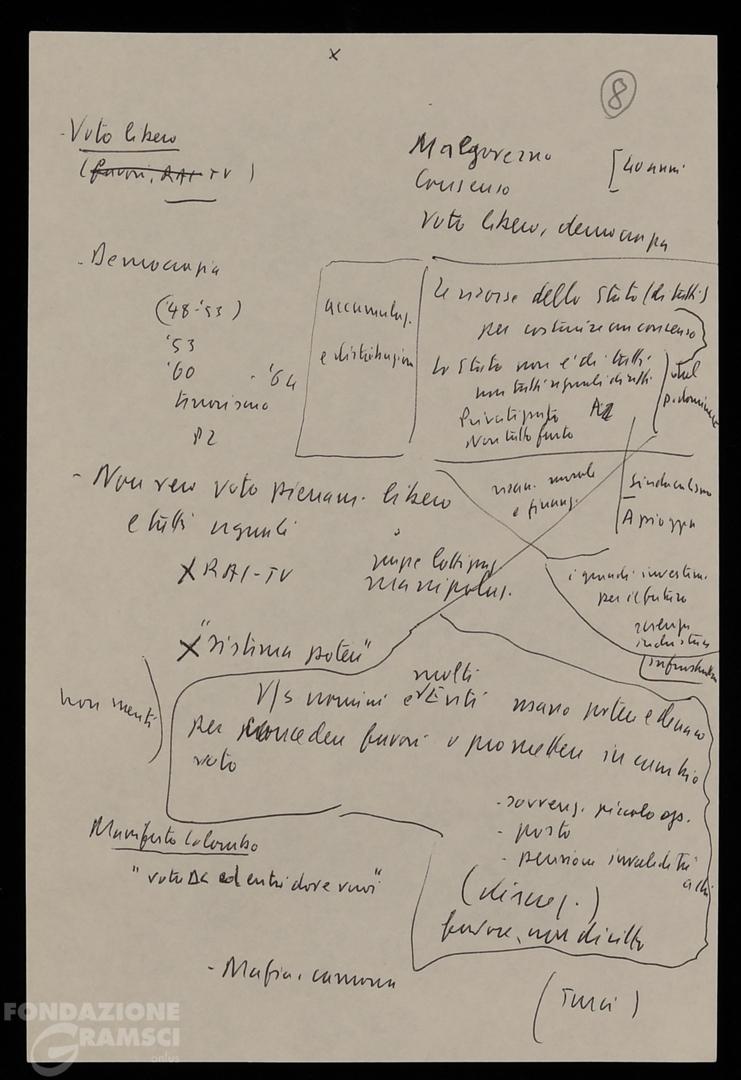 x
8
- Voto libero
(favori, RAI-TV)
Malgoverno
Consenso
[40 anni
voto libero, democrazia
- Democrazia
('48-'53)
'53
'60 - '64
terrorismo
P2
accumulaz.
e distribuzion
Le risorse dello Stato (di tutti)
per costruire un consenso
Lo Stato non è di tutti
non tutti uguali diritti
Non tutto
- Non vero voto pienam. libero
e tutti uguali
risan. morale
e finanz.
Sindacalismo
A pioggia
X RAI-TV
manipolaz.
i grandi investim.
per il futuro
scienza
industria
infrastrutture
X "Sistema potere"
non meriti
V/s uomini e molti Enti usano potere e denaro
per concedere favori o promettere in cambio
voto
- sovvenz. piccolo
- posto
- pensione invalidità
(discrez.)
favore, non diritto
Manifesto Colombo
"voto DC ed entri dove vuoi"
- Mafia, camorra
(Turci)
FONDAZIONE
GRAMSCI
onlus